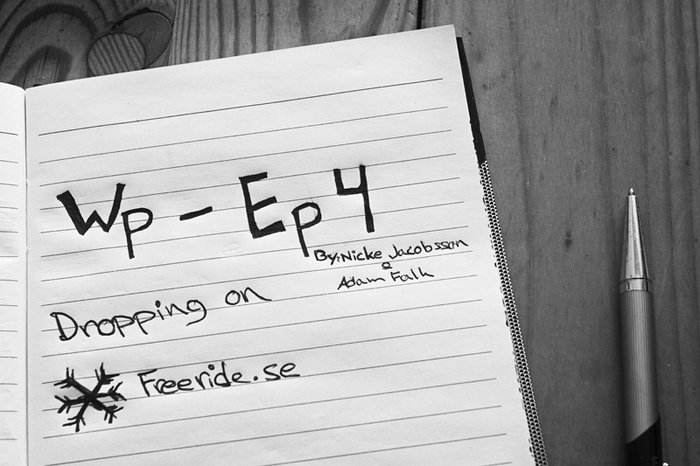 Wp - Ep 4
By: Nicke Jacobsson
&
Adam Falk
Dropping on
Freeride.se